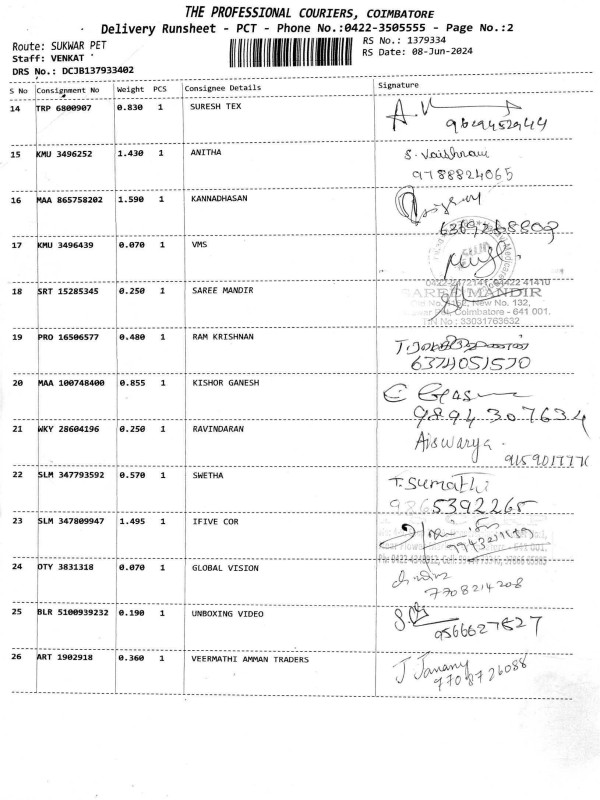 THE PROFESSIONAL COURIERS, COIMBATORE
Delivery Runsheet - PCT - Phone No.:0422-3505555 - Page No.:2
Route: SUKWAR PET
RS No.: 1379334
Staff: VENKAT
RS Date: 08-Jun-2024
DRS No.: DCJB137933402
S No Consignment No Weight PCS Consignee Details Signature
14 TRP 6800907 0.830 1 SURESH TEX
15 KMU 3496252 1.430 1 ANITHA
9788824065
16 MAA 865758202 1.590 1 KANNADHASAN
6369268809
17 KMU 3496439 0.070 1 VMS
18 SRT 15285345 0.250 1 SAREE MANDIR
SAREE MANDIR
New No. 132,
Coimbatore - 641 001.
33031763632
19 PRO 16506577 0.480 1 RAM KRISHNAN
6374051570
20 MAA 100748400 0.855 1 KISHOR GANESH
9894307634
21 WKY 28604196 0.250 1 RAVINDARAN
Aiswarya.
22 SLM 347793592 0.570 1 SWETHA
T. Sumathi
9865392265
23 SLM 347809947 1.495 1 IFIVE COR
24 OTY 3831318 0.070 1 GLOBAL VISION
7708214208
25 BLR 5100939232 0.190 1 UNBOXING VIDEO
9566627827
26 ART 1902918 0.360 1 VEERMATHI AMMAN TRADERS
J Janany
9708726088